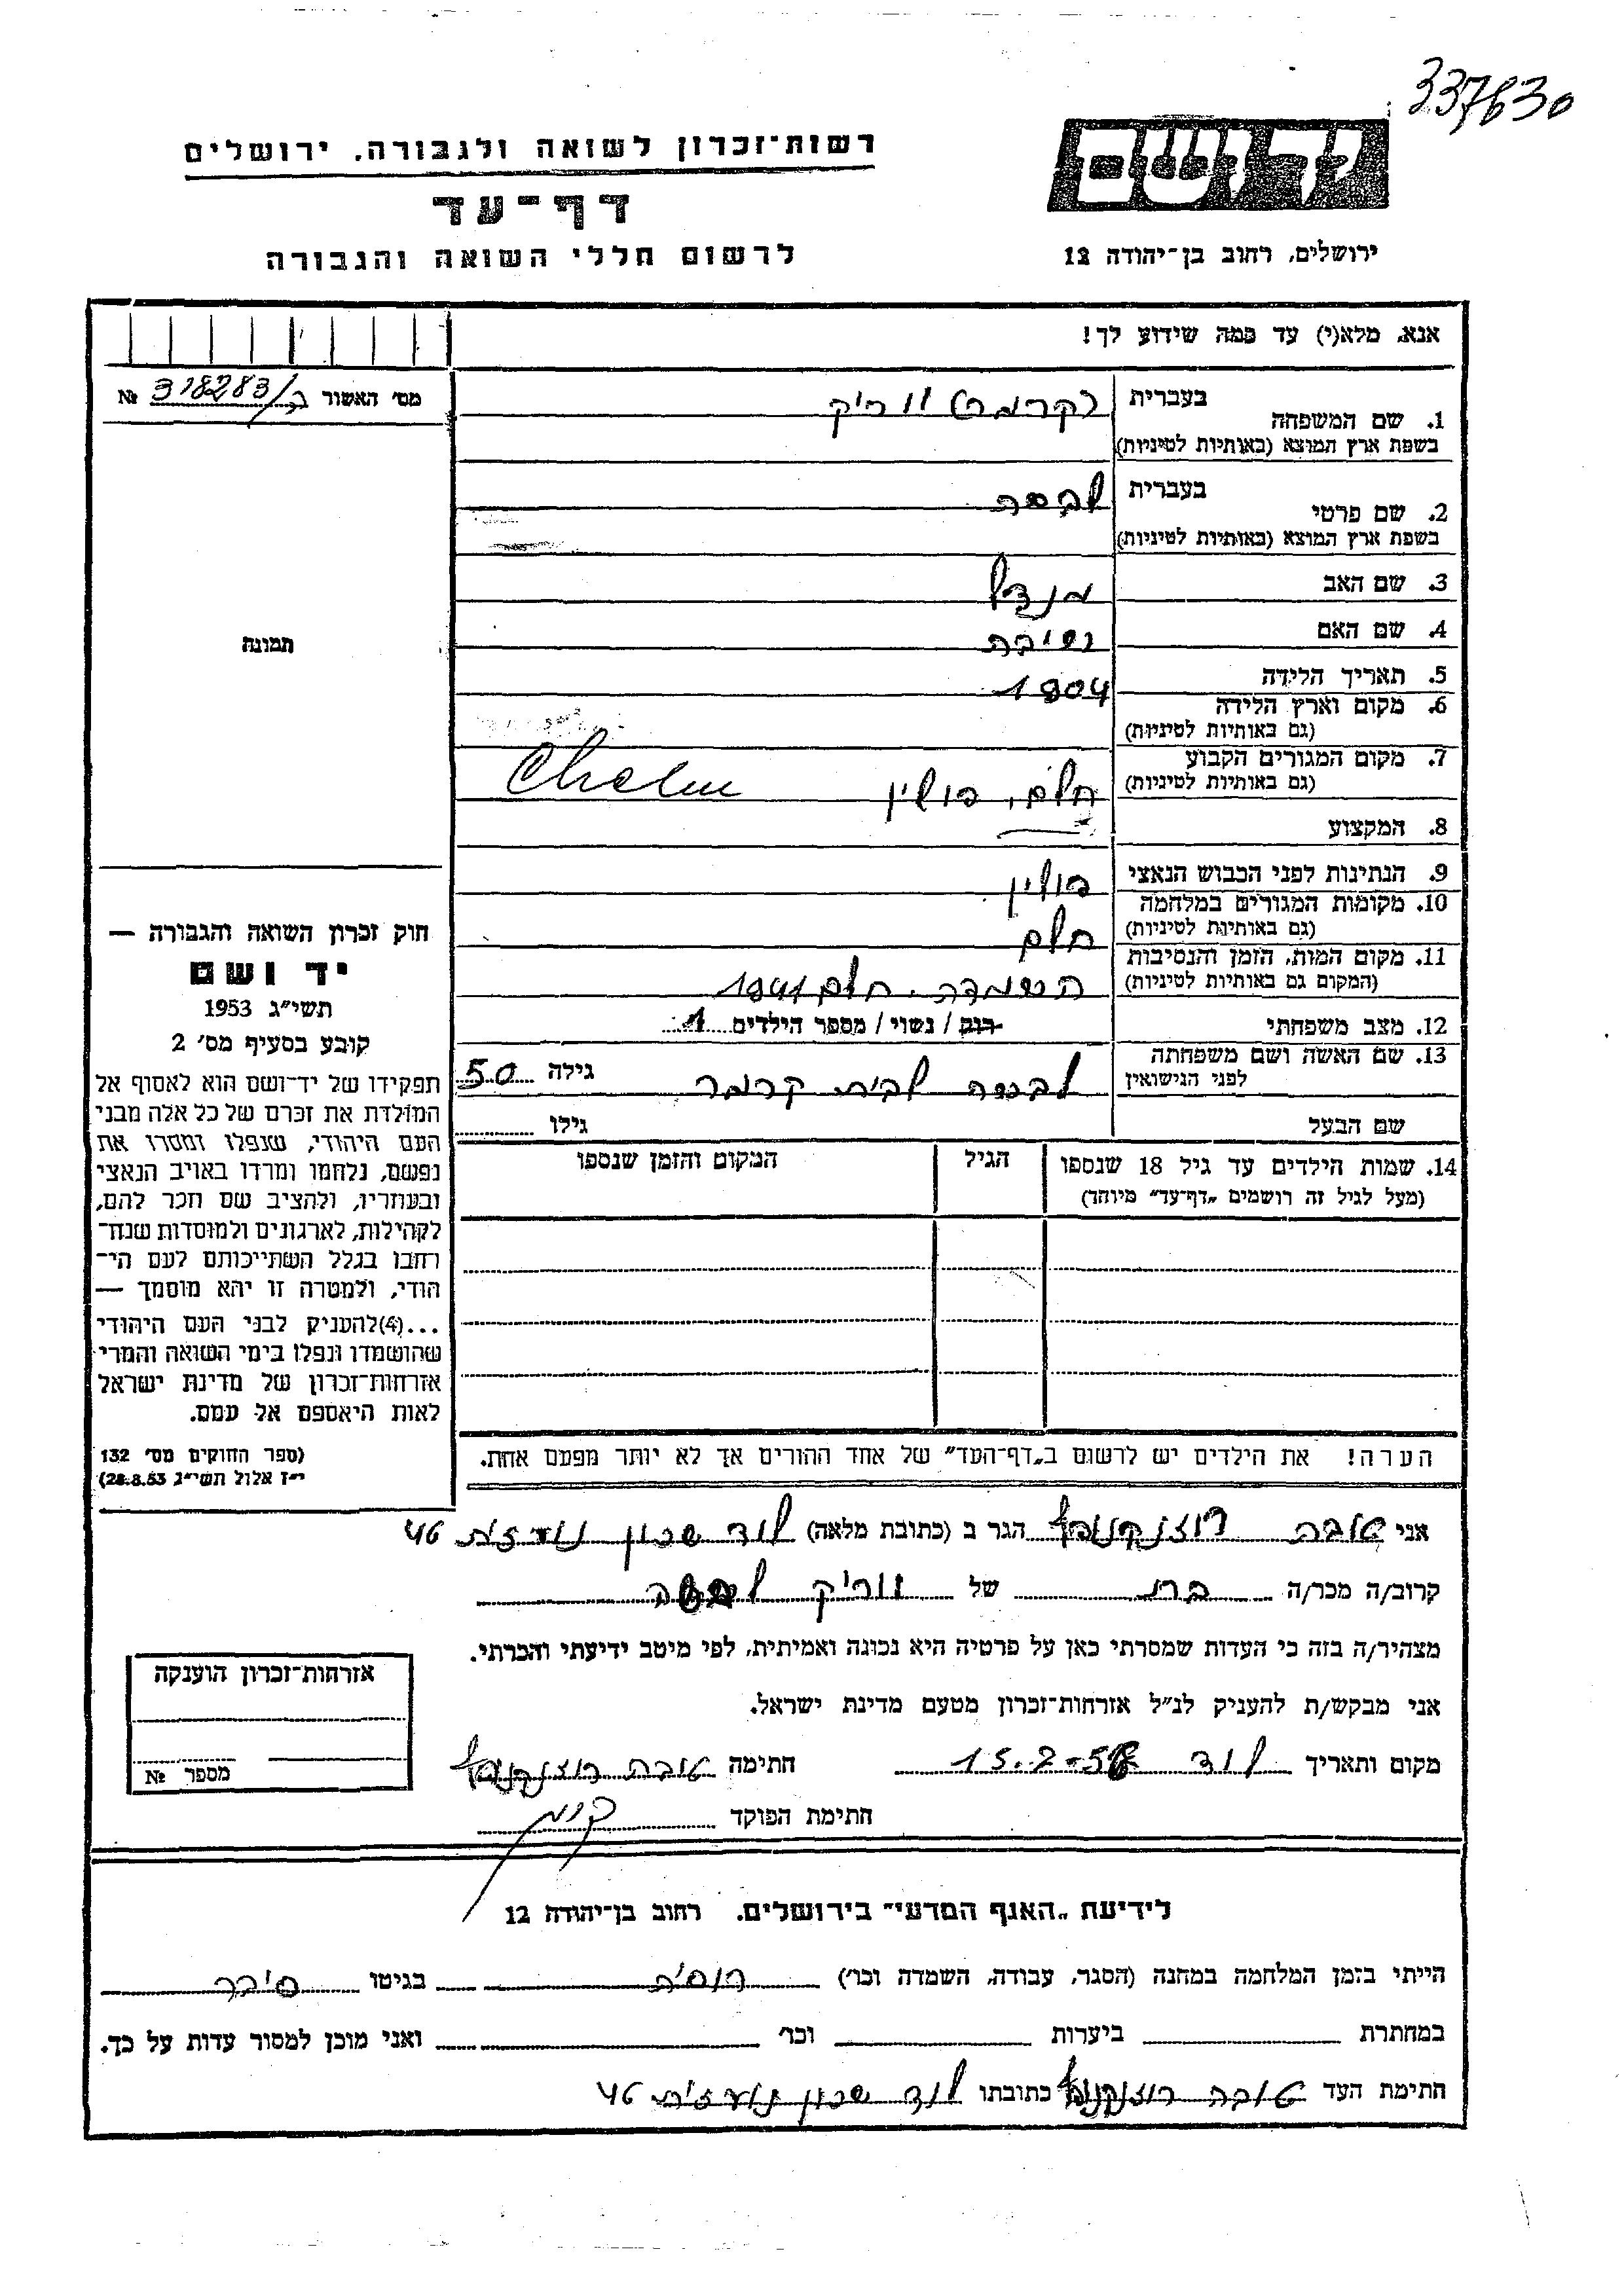 337630
יד ושם
רשות־זכרון לשואה ולגבורה, ירושלים
דף־עד
לרשום חללי השואה והגבורה
ירושלים, רחוב בן־יהודה 12
אנא, מלא(י) עד כמה שידוע לך!
מס' האשור № 318283/
1. שם המשפחה בעברית ווריק
בשפת ארץ המוצא (באותיות לטיניות)
2. שם פרטי בעברית
בשפת ארץ המוצא (באותיות לטיניות)
3. שם האב מנדל
4. שם האם
5. תאריך הלידה 1904
6. מקום וארץ הלידה
(גם באותיות לטיניות)
7. מקום המגורים הקבוע חלם, פולין Chelm
(גם באותיות לטיניות)
8. המקצוע
9. הנתינות לפני הכבוש הנאצי פולין
10. מקומות המגורים במלחמה
(גם באותיות לטיניות) חלם
11. מקום המות, הזמן והנסיבות
(המקום גם באותיות לטיניות) השמדה. חלם 1941
12. מצב משפחתי רוק / נשוי / מספר הילדים 1
13. שם האשה ושם משפחתה
לפני הנישואין לבית קרמר גילה 50
שם הבעל גילו
14. שמות הילדים עד גיל 18 שנספו הגיל המקום והזמן שנספו
(מעל לגיל זה רושמים „דף־עד" מיוחד)
תמונה
חוק זכרון השואה והגבורה —
יד ושם
תשי"ג 1953
קובע בסעיף מס' 2
תפקידו של יד־ושם הוא לאסוף אל
המולדת את זכרם של כל אלה מבני
העם היהודי, שנפלו ומסרו את
נפשם, נלחמו ומרדו באויב הנאצי
ובעוזריו, ולהציב שם וזכר להם,
לקהילות, לארגונים ולמוסדות שנח־
רחבו בגלל השתייכותם לעם הי־
הודי, ולמטרה זו יהא מוסמך —
...(4) להעניק לבני העם היהודי
שהושמדו ונפלו בימי השואה והמרי
אזרחות־זכרון של מדינת ישראל
לאות היאספם אל עמם.
(ספר החוקים מס' 132
י"ז אלול תשי"ג 28.8.53)
הערה! את הילדים יש לרשום ב„דף־העד" של אחד ההורים אך לא יותר מפעם אחת.
אני טובה הגר ב (כתובת מלאה) לוד שכון 46
קרוב/ה מכר/ה בת של ווריק
מצהיר/ה בזה כי העדות שמסרתי כאן על פרטיה היא נכונה ואמיתית, לפי מיטב ידיעתי והכרתי.
אני מבקש/ת להעניק לנ"ל אזרחות־זכרון מטעם מדינת ישראל.
מקום ותאריך לוד 15.2-56 חתימה טובה
חתימת הפוקד
אזרחות־זכרון הוענקה
מספר №
לידיעת „האגף המדעי" בירושלים, רחוב בן־יהודה 12
הייתי בזמן המלחמה במחנה (הסגר, עבודה, השמדה וכר') רוסיה בגיטו סיביר
במחתרת ביערות וכר' ואני מוכן למסור עדות על כך.
חתימת העד טובה כתובתו לוד שכון 46